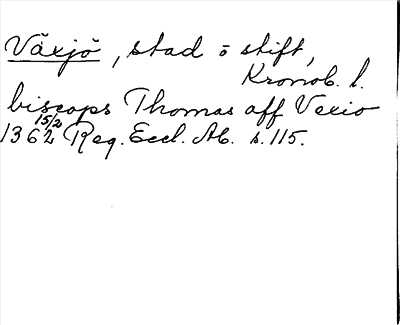 Växjö, stad o stift,
Kronob. l.
biscops Thomas aff Vexio
1362 15/2 Reg. Eccl. Ab. s. 115.